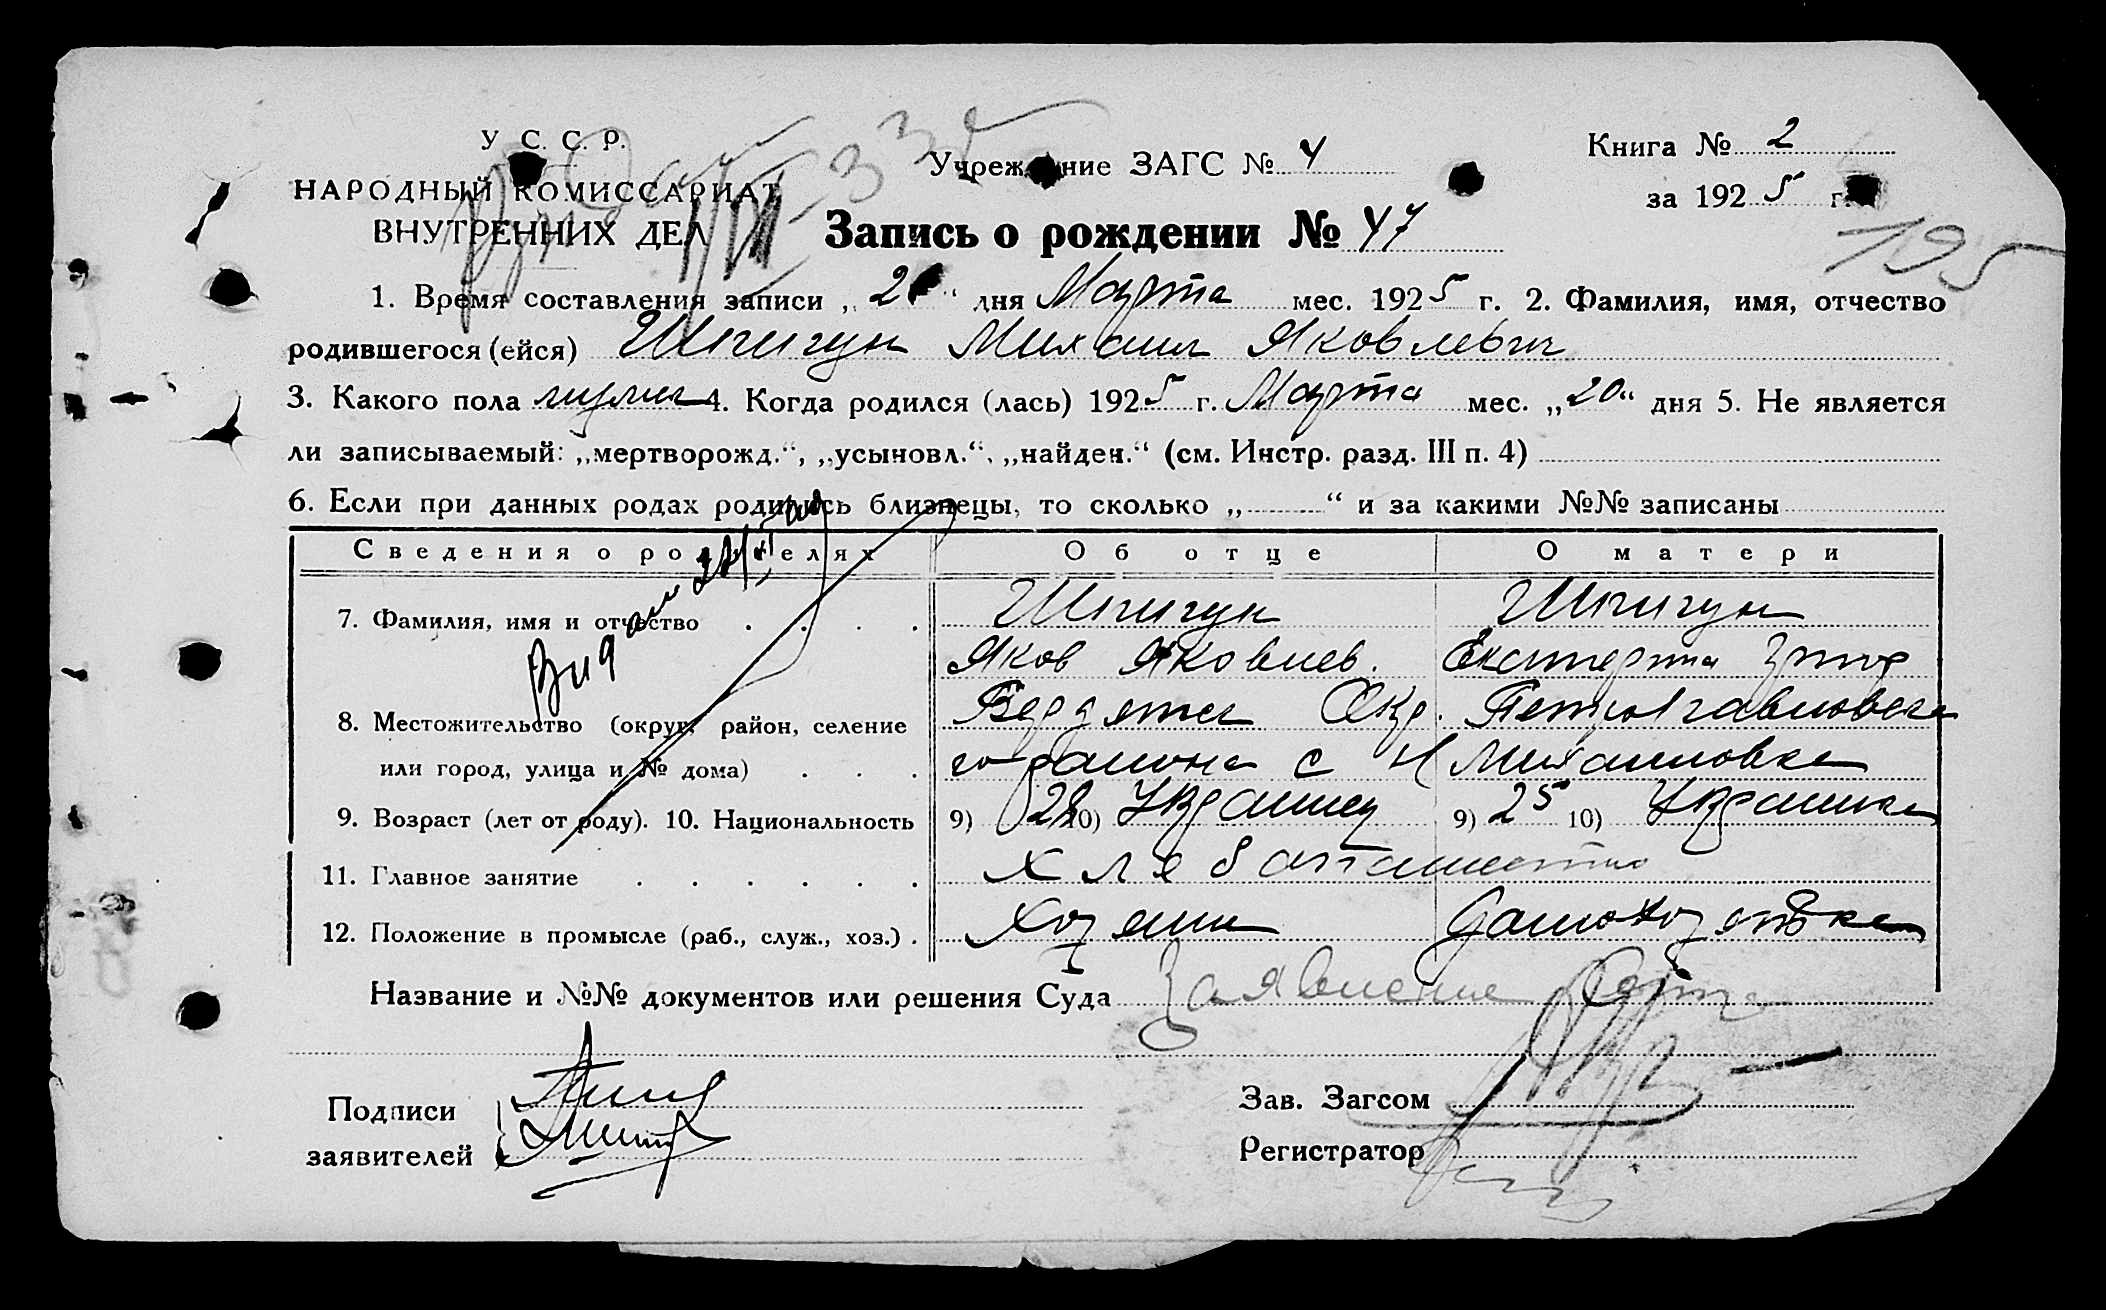 У С. С. Р.
НАРОДНЫЙ КОМИССАРИАТ
ВНУТРЕННИХ ДЕЛ
Учреждение ЗАГС № 4
Книга № 2
за 1925 г.
195
Запись о рождении № 47
1. Время составления записи „ 2 “ дня Марта мес. 1925 г. 2. Фамилия, имя, отчество
родившегося (ейся) Шпигун Михаил Яковлевич
3. Какого пола мужск 4. Когда родился (лась) 1925 г. Марта мес. „20“ дня 5. Не является
ли записываемый: „мертворожд.“, „усыновл.“, „найден.“ (см. Инстр. разд. III п. 4)
6. Если при данных родах родились близнецы, то сколько „ “ и за какими №№ записаны
Сведения о родителях Об отце О матери
7. Фамилия, имя и отчество Шпигун Шпигун
Яков Яковлев. Екатерина
8. Местожительство (округ, район, селение Окр. Петропавловск
или город, улица и № дома) го района с Н Михайловка
9. Возраст (лет от роду). 10. Национальность 9) 28 10) Украинец 9) 25 10) Украинка
11. Главное занятие Хлебопашество
12. Положение в промысле (раб., служ., хоз.) Хозяин Домохозяйка
Название и №№ документов или решения Суда Заявление
Подписи
заявителей
Зав. Загсом
Регистратор